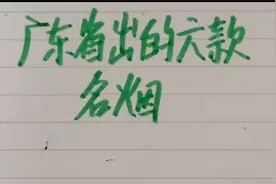 广东省出的六款
名烟